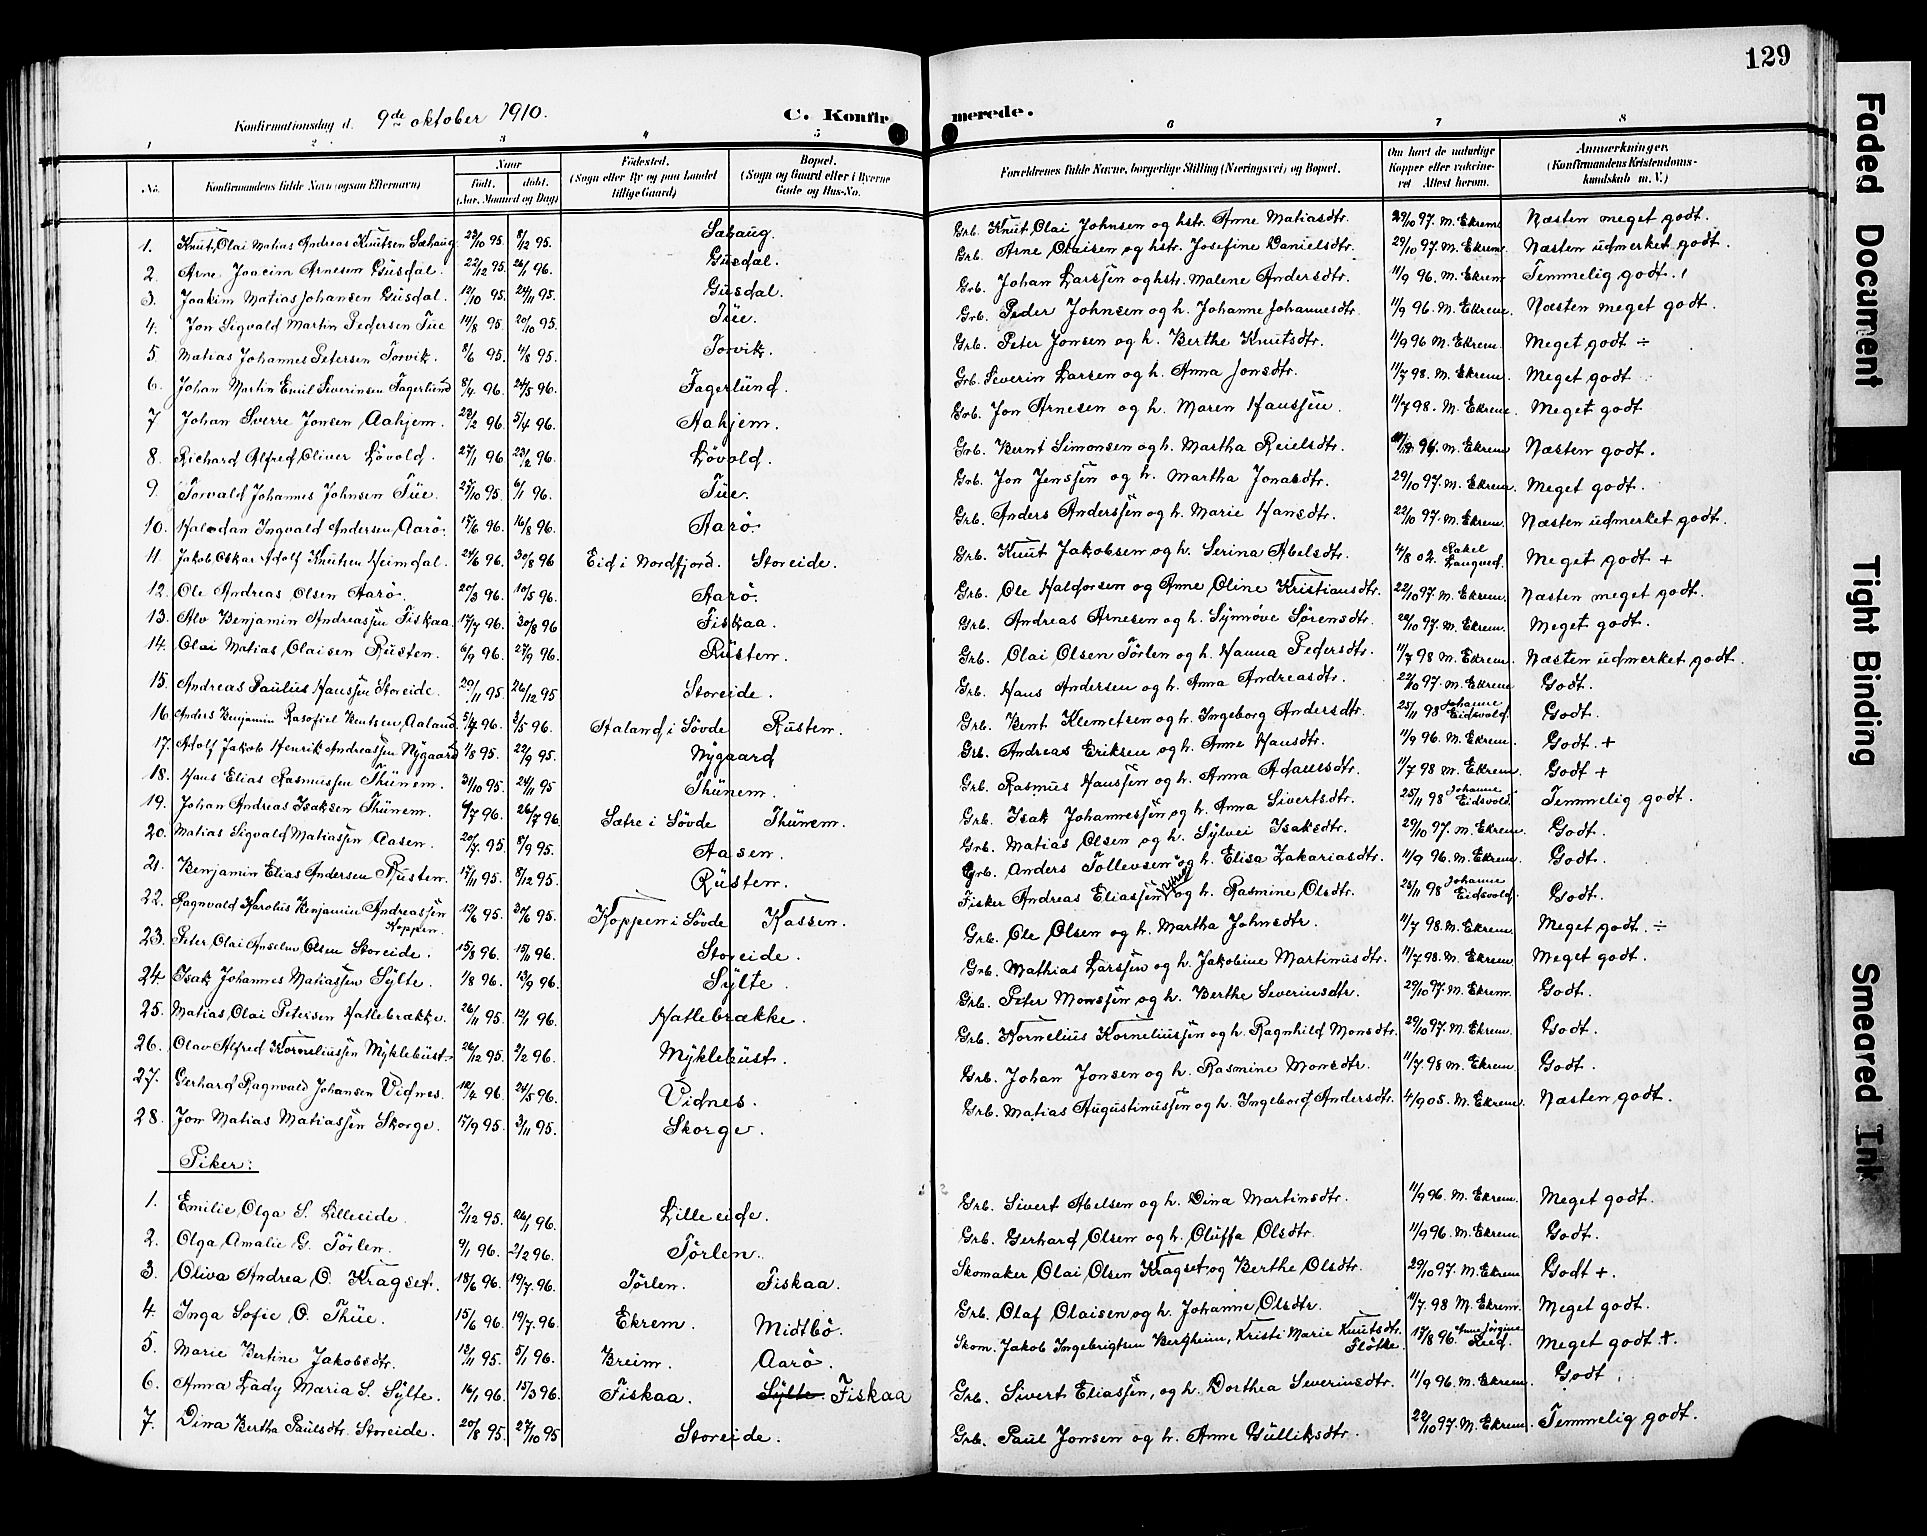 129
Konfirmationsdag d. 9de oktober 1910. C. Konfirmerede.
1 2 3 4 5 6 7 8
No. Konfirmandens fulde Navn (ogsaa Efternavn) Naar født, døbt. (Aar, Maaned og Dag) Fødested. (Sogn eller By og paa Landet tillige Gaard) Bopæl. (Sogn og Gaard eller i Byerne Gade og Hus-No. Forældrenes fulde Navne, borgerlige Stilling (Næringsvei) og Bopæl. Om havt de naturlige Kopper eller vakcineret. Attest herom. Anmærkninger. (Konfirmandens Kristendomskundskab m. V.)
1. Knut Olai Matias Andreas Knutsen Sæhaug 23/10 95. 8/12 95. Sæhaug. Grb. Knut Olai Johnsen og hstr. Anne Matiasdtr. 29/10 97. M. Ekrem Næsten meget godt.
2. Arne Joacim Arnesen Gusdal. 22/12 95. 26/1 96. Gusdal. Grb. Arne Olaisen og hstr. Josefine Danielsdtr. 29/10 97. M. Ekrem. Næsten udmerket godt.
3. Joakim Matias Johansen Gusdal. 12/10 95. 24/11 95. Gusdal. Grb. Johan Larssen og hstr. Malene Andersdtr. 11/9 96. M. Ekrem Temmelig godt.
4. Jon Sigvald Martin Pedersen Tue 14/8 95. 20/10 95. Tue. Grb. Peder Johnsen og h. Johanne Johannesdtr. 11/9 96. M. Ekrem. Næsten meget godt.
5 Matias Johannes Petersen Torvik. 8/6 95. 4/8 95. Torvik. Grb. Peter Jonsen og h. Berthe Knutsdtr. 11/9 96 M. Ekrem. Meget godt ÷
6. Johan Martin Emil Severinsen Fagerlund 8/4 96. 24/5 96. Fagerlund. Grb. Severin Larsen og h. Anna Jonsdtr. 11/7 98. M. Ekrem. Meget godt
7 Johan Sverre Jonsen Aahjem. 23/2 96. 5/4 96. Aahjem. Grb. Jon Arnesen og h. Maren Hanssen. 11/7 98. M. Ekrem. Meget godt
8. Richard Alfred Oliver Løvold. 27/1 96 23/2 96. Løvold. Grb. Bernt Simonsen og h. Martha Reielsdtr. 96. M. Ekrem Næsten godt.
9. Torvald Johannes Johnsen Tue. 27/10 95. 6/1 96. Tue. Grb. Jon Jenssen og h. Martha Jonasdtr. 29/10 97. M. Ekrem. Meget godt.
10. Halvdan Ingvald Andersen Aarø. 17/6 96. 16/8 96. Aarø. Grb. Anders Anderssen og h. Marie Hansdtr. 22/10 97. M. Ekrem. Næsten udmerket godt.
11. Jakob Oskar Adolf Knutsen Heimdal. 24/6 96. 30/8 96 Eid i Nordfjord. Storeide. Grb. Knut Jakobsen og h. Serina Abelsdtr. 4/8 02. Rakel Langved. Meget godt +
12. Ole Andreas Olsen Aarø. 27/3 96. 10/5 96. Aarø. Grb. Ole Haldorsen og Anne Oline Kristiansdtr. 22/10 97. M. Ekrem. Næsten meget godt.
13. Alv Benjamin Andreassen Fiskaa. 17/7 96. 30/8 96 Fiskaa. Grb. Andreas Arnesen og h. Synnøve Sørensdtr. 22/10 97. M. Ekrem. Meget godt.
14. Olai Matias Olaisen Rusten. 6/9 96. 27/9 96. Rusten. Grb. Olai Olsen Tørlen og h. Hanna Pedersdtr. 11/7 98 M. Ekrem. Næsten udmerket godt.
15. Andreas Paulus Hanssen Storeide. 29/11 95. 26/12 95 Storeide. Grb. Hans Andersen og h. Anna Andreasdtr. 22/10 97. M. Ekrem Godt.
16. Anders Benjamin Rasofiel Bentsen Aaland 5/4 96. 3/5 96. Aaland i Søvde Rusten. Grb. Bent Klemetsen og h. Ingeborg Andersdtr. 25/11 98 Johanne Eidsvold. Godt.
17. Adolf Jakob Henrik Andreassen Nygaard 1/8 95. 22/9 95. Nygaard Grb. Andreas Eriksen og h. Anne Hansdtr. 11/9 96. M. Ekrem. Godt. +
18. Hans Elias Rasmussen Thunem. 31/10 95. 24/11 95 Thunem. Grb. Rasmus Hanssen og h. Anna Adamsdtr. 11/7 98 M. Ekrem. Godt +
19. Johan Andreas Isaksen Thunem. 6/7 96. 26/7 96. Sætre i Søvde Thunem. Grb. Isak Johannessen og h. Anna Sivertsdtr. 25/11 98 Johanne Eidsvold. Temmelig godt.
20. Matias Sigvald Matiassen Aasen. 20/7. 95. 8/9 95. Aasen. Grb. Matias Olsen og h. Sylvei Isaksdtr. 29/10 97. M. Ekrem. Godt.
21. Benjamin Elias Andersen Rusten. 17/11 95. 8/12 95. Rusten. Grb. Anders Tollevsen og h. Elisa Zakariasdtr. 11/9 96. M. Ekrem. Godt.
22. Ragnvald Karolus Benjamin Andreassen Koppen. 12/6 95. 30/6 95. Koppen i Søvde Kassen. Fisker Andreas Eliassen og h. Rasmine Olsdtr. 25/11 98 Johanne Eidsvold. Godt.
23. Peter Olai Anselm Olsen Storeide. 15/8 96. 15/11 96. Storeide. Grb. Ole Olsen og h. Martha Johnsdtr. 11/7 98. M. Ekrem. Meget godt. ÷
24. Isak Johannes Matiassen Sylte. 1/8 96. 13/9 96. Sylte. Grb. Mathias Larssen og h. Jakobine Martinusdtr. 11/7 98. M. Ekrem Meget godt.
25. Matias Olai Petersen Hatlebrække. 26/11 95. 12/1 96. Hatlebrække. Grb. Peter Monssen og h. Berthe Severinsdtr. 29/10 97. M. Ekrem. Godt.
26. Olav Alfred Korneliussen Myklebust. 26/12 95. 2/2 96. Myklebust. Grb. Kornelius Korneliussen og h. Ragnhild Monsdtr. 29/10 97. M. Ekrem. Godt.
27. Gerhard Ragnvald Johansen Vidnes. 12/4 96. 24/5 96. Vidnes. Grb. Johan Jonsen og h. Rasmine Monsdtr. 11/7. 98 M. Ekrem. Godt.
28. Jon Matias Matiassen Skorge. 17/9 95. 3/11 95. Skorge. Grb. Matias Augustinussen og h. Ingeborg Andersdtr. 4/9 05. M. Ekrem. Næsten godt.
Piker:
1. Emilie Olga S. Lilleeide. 2/12 95. 26/1 96. Lilleeide. Grb. Sivert Abelsen og h. Dina Martinsdtr. 11/9 96. M. Ekrem. Meget godt.
2. Olga Amalie G. Tørlen. 9/1 96. 2/2 96. Tørlen. Grb. Gerhard Olsen og h. Oluffa Olsdtr. 11/9 96. M. Ekrem. Godt.
3. Oliva Andrea O. Kragset. 18/6 96. 19/7. 96. Tørlen. Fiskaa. Skomaker Olai Olsen Kragset og Berthe Olsdtr. 29/10 97. M. Ekrem Godt +.
4. Inga Sofie O. Thue. 15/6 96. 19/7. 96. Ekrem. Midtbø. Grb. Olaf Olaisen og h. Johanne Olsdtr. 11/7. 98 M. Ekrem. Meget godt.
5. Marie Bertine Jakobsdtr. 12/11 95. 5/1 96. Breim. Aarø. Skom. Jakob Ingebrigtsen Bergheim, Kristi Marie Knutsdtr. Fløtke. 17/8 96. Anne Jørgine Reed. Meget godt +.
6. Anna Lady Maria S. Sylte. 16/1 96. 15/3 96. Fiskaa. Sylte Fiskaa Grb. Sivert Eliassen, og h. Dorthea Severinsdtr. 11/9 96. M. Ekrem. Godt
7. Dina Bertha Paulsdtr. Storeide. 20/8 95. 27/10 95 Storeide. Grb. Paul Jonsen og h. Anne Gulliksdtr. 22/10 97. M. Ekrem. Temmelig godt.
Faded Document
Tight Binding
Smeared Ink